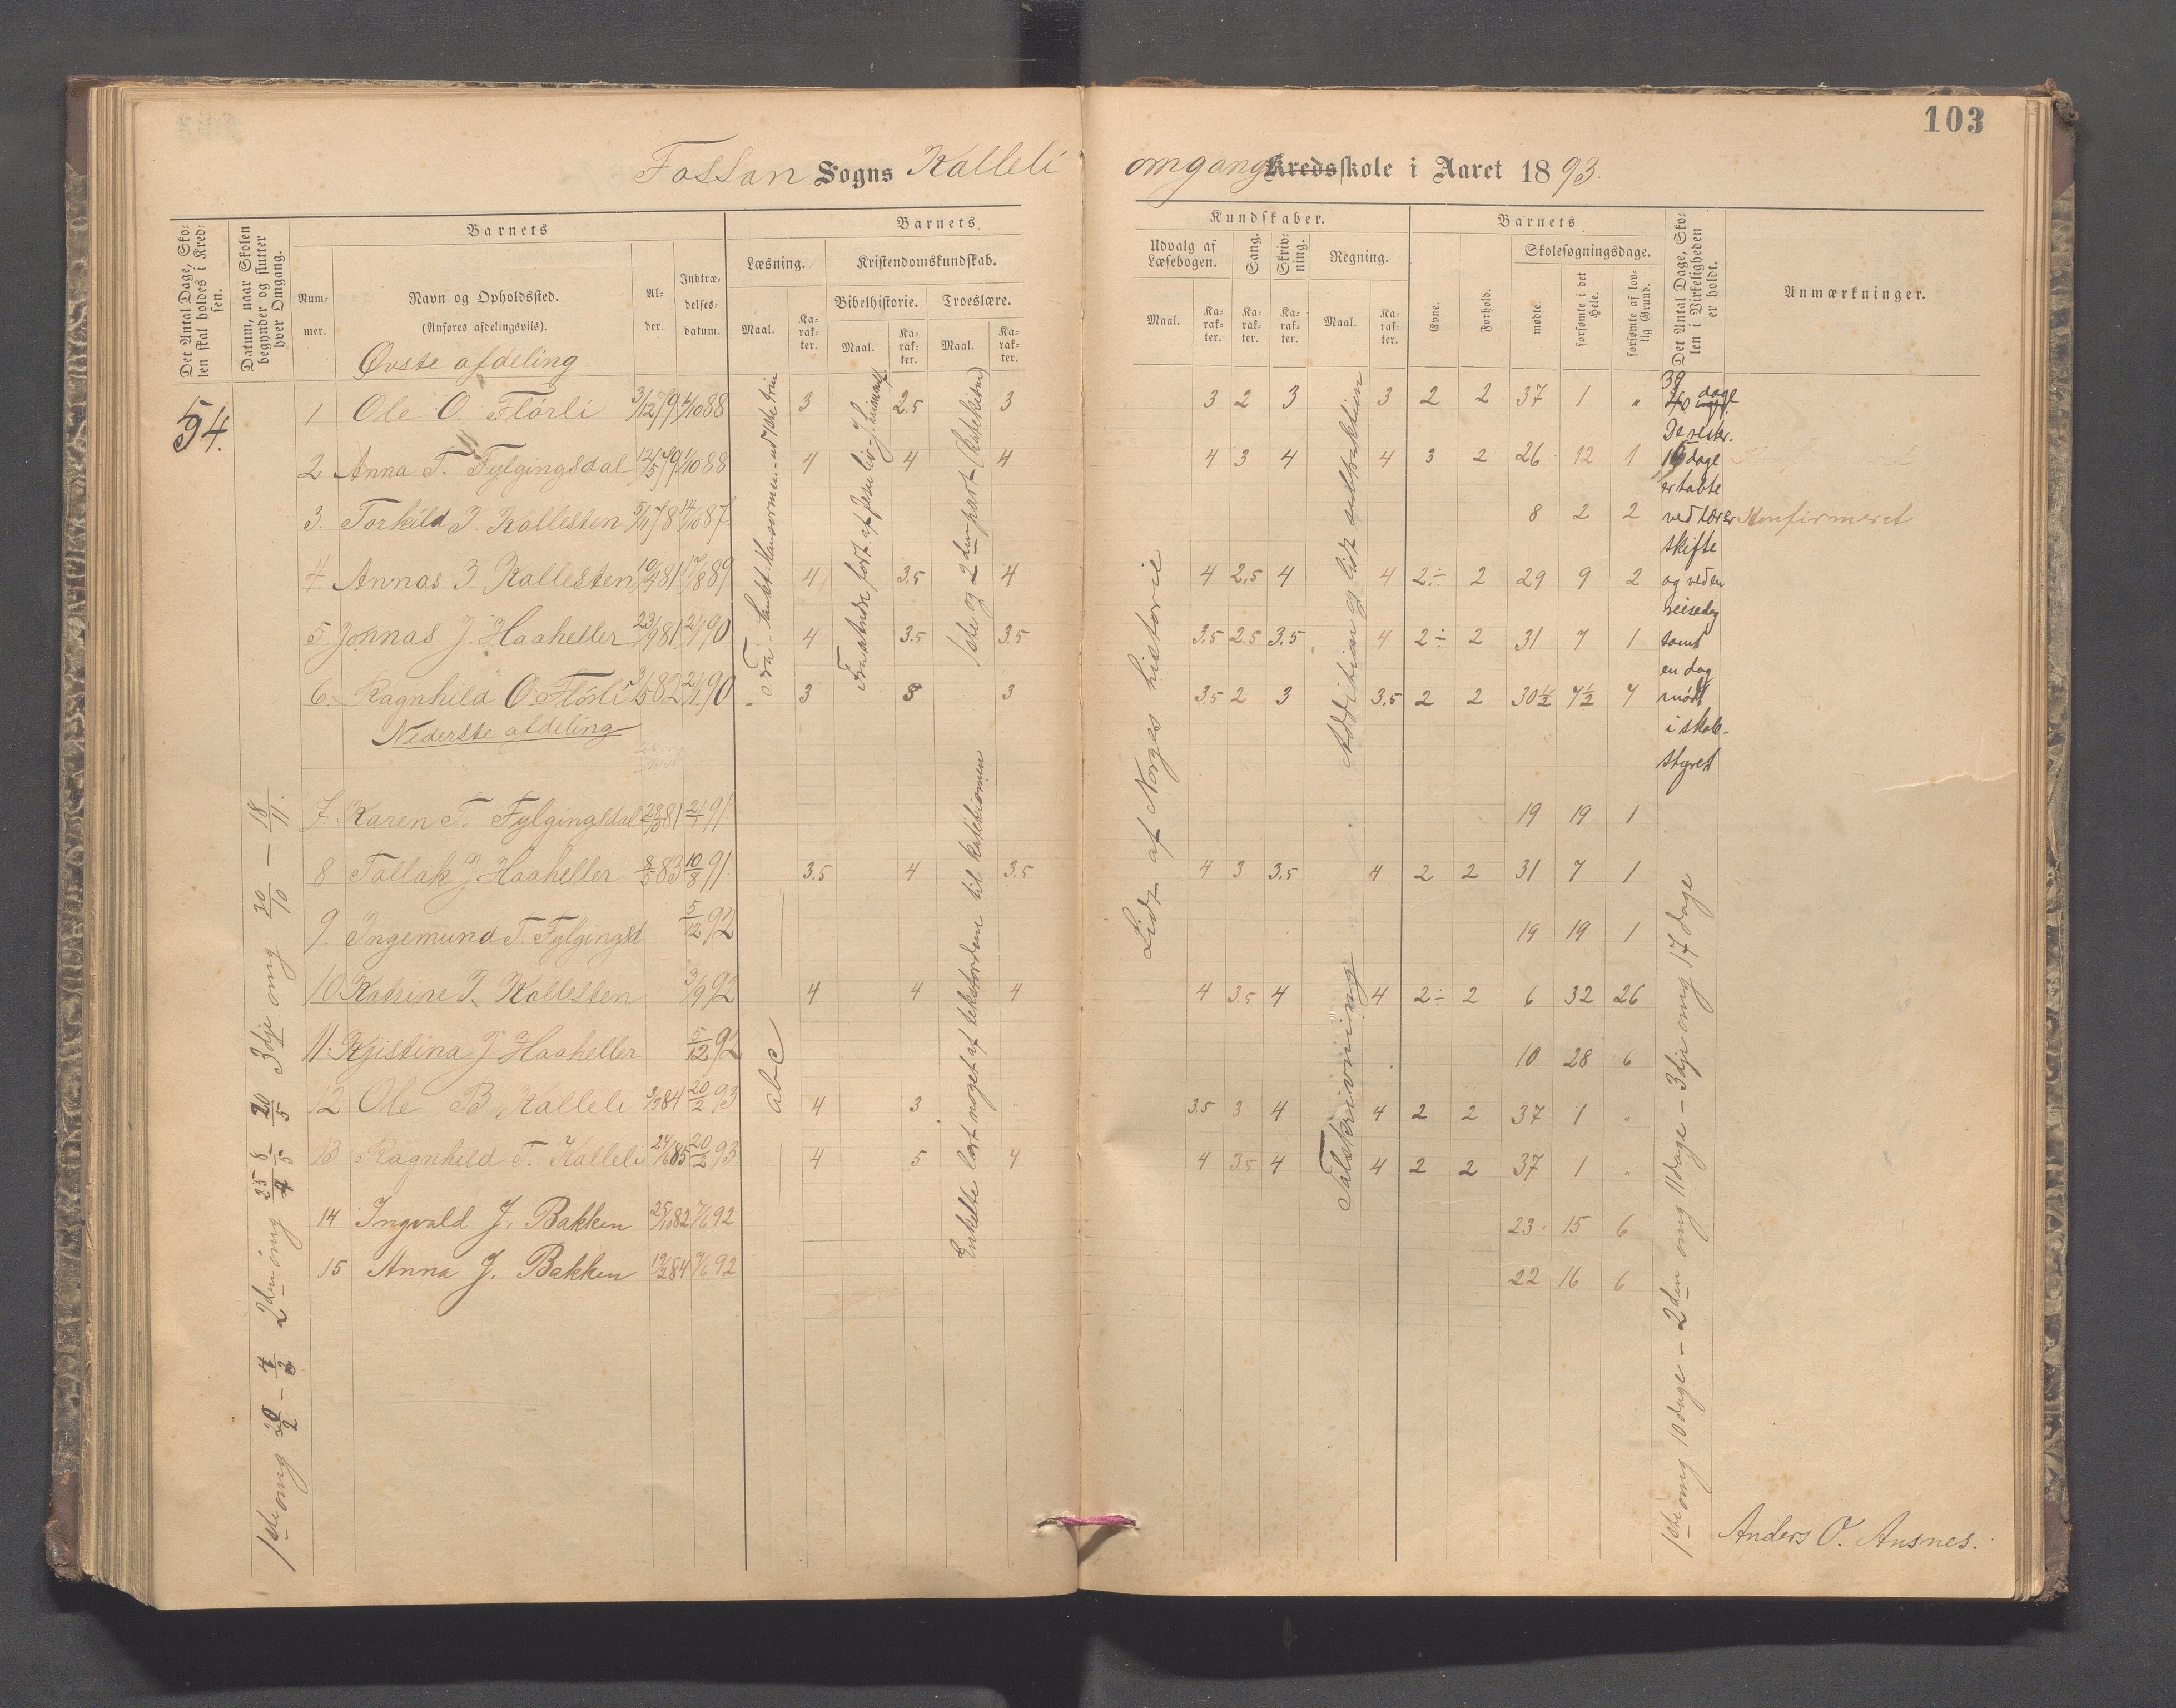 103
Fossan Sogns Kalleli omgang Kredsskole i Aaret 1893.
Det Antal Dage, Skolen skal holdes i Kredsen.
Datum, naar Skolen begynder og slutter hver Omgang.
Barnets
Nummer.
Navn og Opholdssted.
(Anføres afdelingsviis).
Alder.
Indtrædelsesdatum.
Barnets
Læsning.
Maal.
Karakter.
Kristendomskundskab.
Bibelhistorie.
Maal.
Karakter.
Troeslære.
Maal.
Karakter.
Kundskaber.
Udvalg af Læsebogen.
Maal.
Karakter.
Sang.
Karakter.
Skrivning.
Karakter.
Regning.
Maal.
Karakter.
Barnets
Evne.
Forhold.
Skolesøgningsdage.
mødte.
forsømte i det Hele.
forsømte af lovlig Grund.
Det Antal Dage, Skolen i Virkeligheden er holdt.
Anmærkninger.
Øvste afdeling.
54.
1 Ole O. Florli 3/12 79 1/10 88 3 2.5 3 3 2 3 3 2 2 37 1 "
2 Anna T. Fylgingsdal 12/5 79 1/10 88 4 4 4 4 3 4 4 3 2 26 12 1
3. Torkild J. Kallesten 5/11 78 14/10 87 8 2 2 Konfirmeret
4. Annas J. Kallesten 10/4 81 17/8 89 4 3.5 4 4 2.5 4 4 2÷ 2 29 9 2
5 Jonnas J. Haaheller 23/9 81 2/1 90 4 3.5 3.5 3.5 2.5 3.5 4 2÷ 2 31 7 1
6. Ragnhild O. Flörli 3/5 82 2/1 90 3 3 3 3.5 2 3 3.5 2 2 30½ 7½ 7
Nederste afdeling
7. Karen T. Fylgingsdal 28/10 81 2/1 91. 19 19 1
8 Tallak J. Haaheller 8/5 83 10/8 91. 3.5 4 3.5 4 3 3.5 4 2 2 31 7 1
9. Ingemund T. Fylgingsd 5/12 92 19 19 1
10 Katrine J. Kallesten 3/9 92 4 4 4 4 3.5 4 4 2÷ 2 6 32 26
11. Kristina J Haaheller 5/12 92 10 28 6
12 Ole B. Kalleli 3/3 84 20/2 93 4 3 3.5 3 4 4 2 2 37 1 "
13 Ragnhild T. Kalleli 24/6 85 20/2 93 4 5 4 4 3.5 4 4 2 2 37 1 "
14 Ingvald J. Bakken 25/10 82 7/6 92 23 15 6
15 Anna J. Bakken 19/2 84 7/6 92 22 16 6
1ste omg 20/2 – 4/3 2den omg 25/4 8/5 20/5 3dje omg 30/10 – 18/11.
abc
1ste og 2den part (Katekismen)
Enkelte lært noget af tekstordene til katekismen
Lidt af Norges historie
Addition og lidt subtraktion
Talskrivning
39
40 dage
De rester.
15 dage
er tabte
ved lærer
skifte
og ved en
reisedag
samt
en dag
mødt
i skole-
styret
1ste omg 10 dage – 2den omg 11 dage – 3dje omg 17 dage
Anders O. Ausnes.